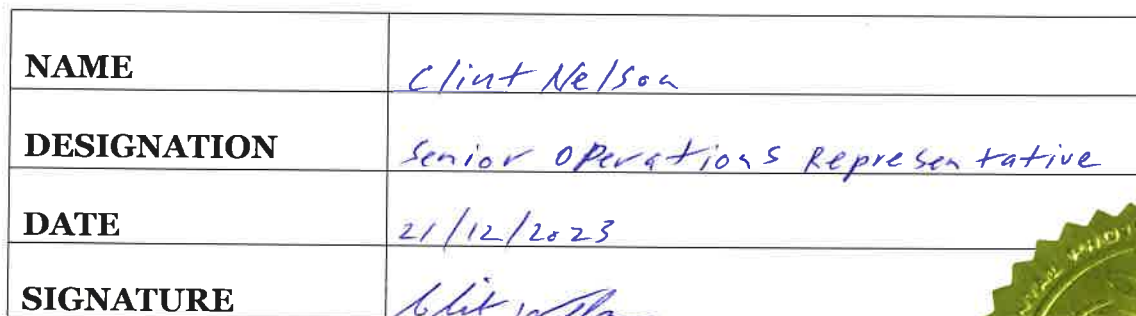 NAME Clint Nelson
DESIGNATION Senior Operations Representative
DATE 21/12/2023
SIGNATURE